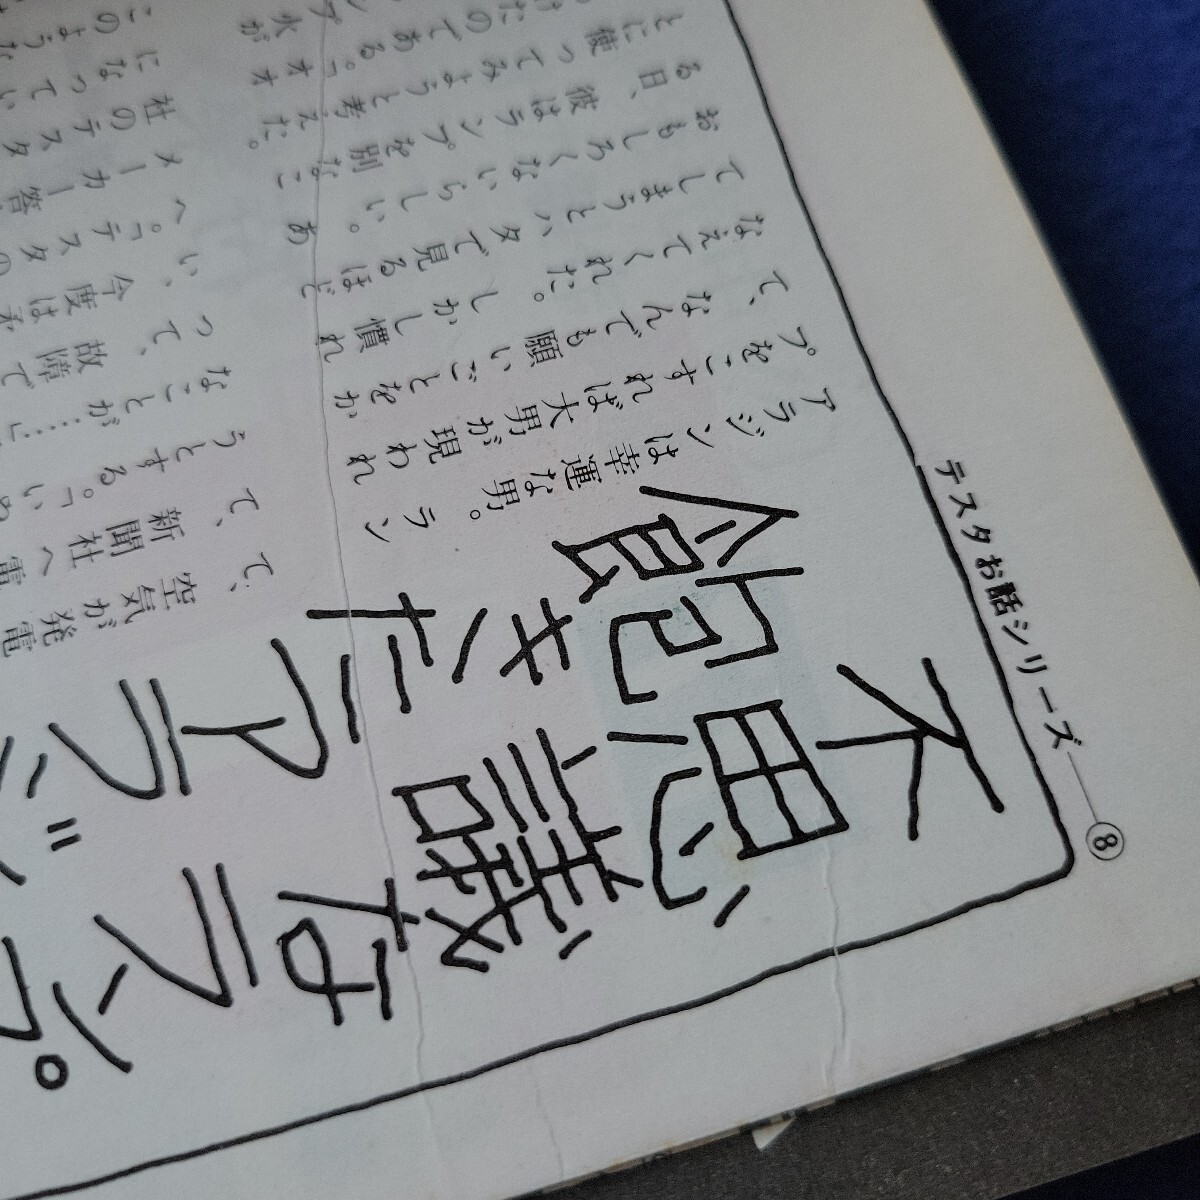 テスタお話シリーズ―⑧
不思議なランプ。
飽きたアラジン
アラジンは幸運な男。ラン
プをこすれば大男が現われ
て、なんでも願いごとをか
なえてくれた。しかし慣れ
てしまうとハタで見るほど
おもしろくないらしい。あ
る日、彼はランプを別なこ
とに使ってみようと考えた。
けたのである。「オオ
ア火が
て、空気が発電
て、新聞社へ電
うとする。「い
なことが……」
って、故障で
い、今度は
へ。「テスタの
メーカー答
社のテスタ
になってい
このような